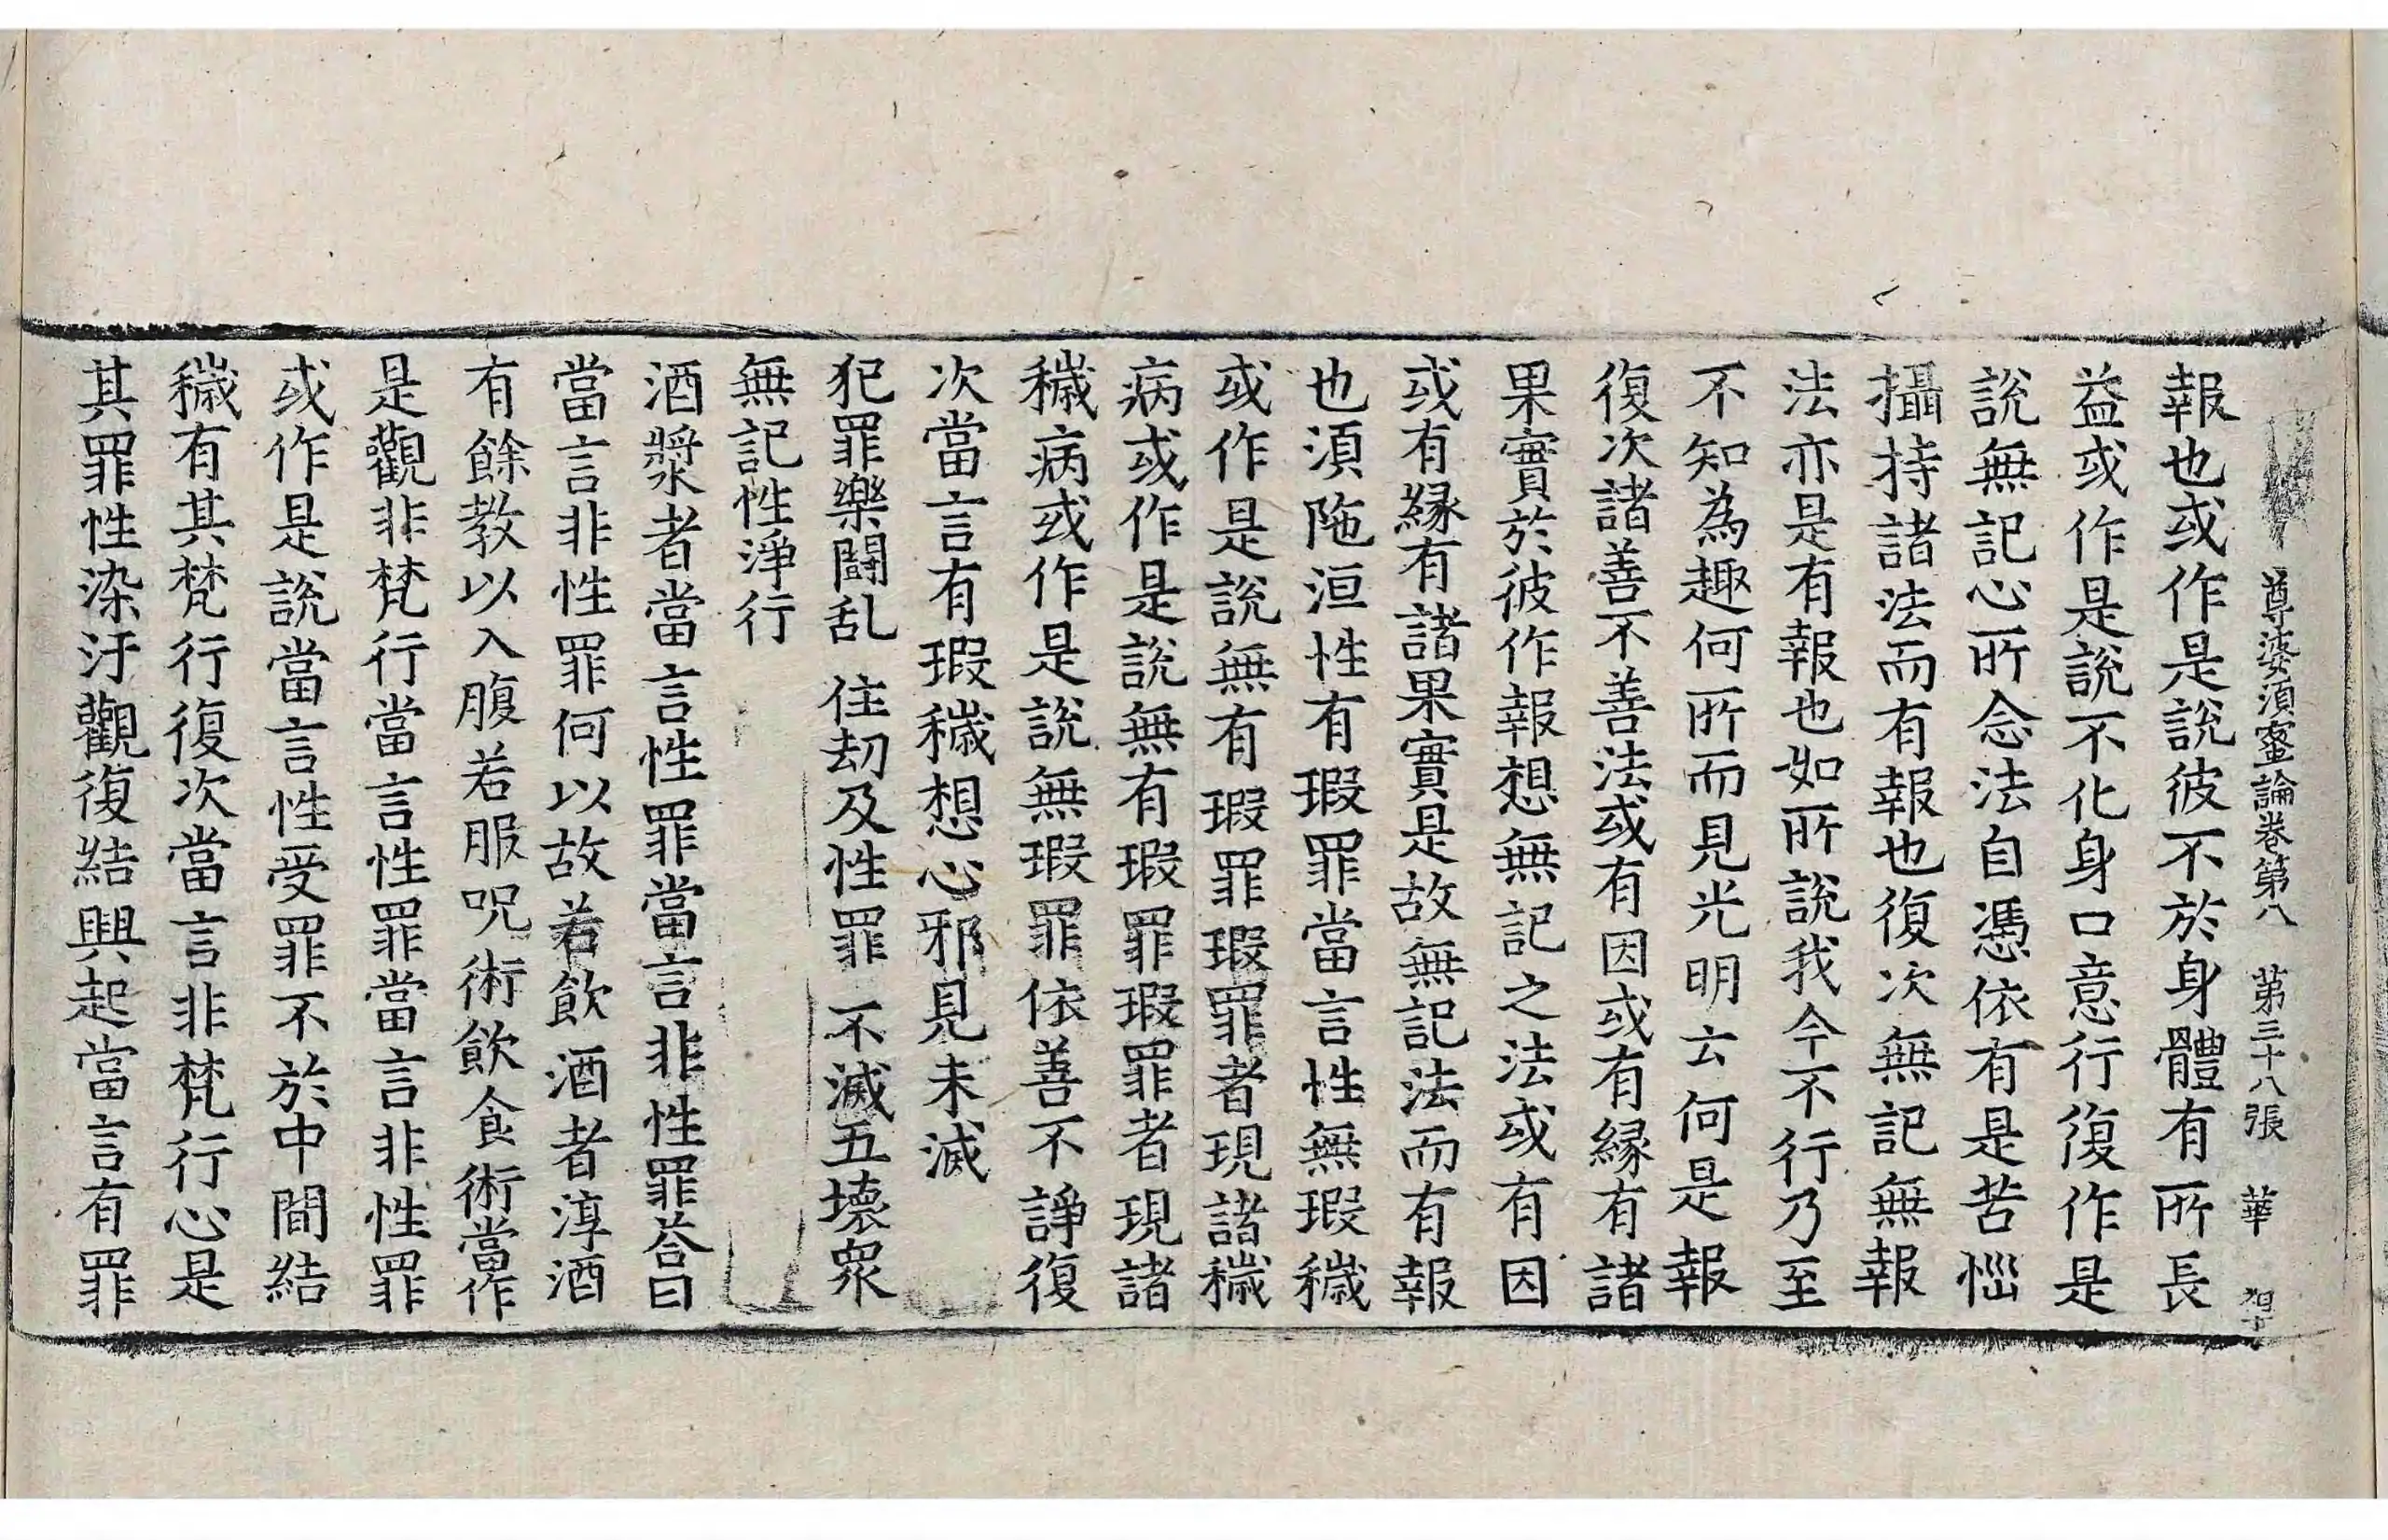 尊婆須蜜論卷第八　第三十八張　華
報也或作是說彼不於身體有所長
益或作是說不化身口意行復作是
說無記心所念法自憑依有是苦惱
攝持諸法而有報也復次無記無報
法亦是有報也如所說我今不行乃至
不知為趣何所而見光明云何是報
復次諸善不善法或有因或有緣有諸
果實於彼作報想無記之法或有因
或有緣有諸果實是故無記法而有報
也須陁洹性有瑕罪當言性無瑕穢
或作是說無有瑕罪瑕罪者現諸穢
病或作是說無有瑕罪瑕罪者現諸
穢病或作是說無瑕罪依善不諍復
次當言有瑕穢想心邪見未滅
犯罪樂鬪乱　住劫及性罪　不滅五壞衆
無記性淨行
酒漿者當言性罪當言非性罪荅曰
當言非性罪何以故若飲酒者淳酒
有餘教以入腹若服呪術飲食術當作
是觀非梵行當言性罪當言非性罪
或作是說當言性受罪不於中間結
穢有其梵行復次當言非梵行心是
其罪性染汙觀復結興起當言有罪